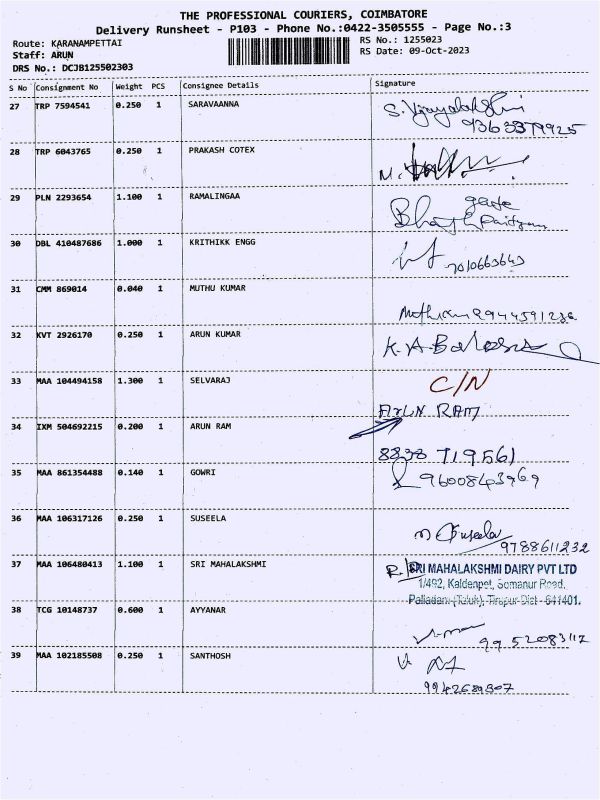 THE PROFESSIONAL COURIERS, COIMBATORE
Delivery Runsheet - P103 - Phone No.:0422-3505555 - Page No.:3
Route: KARANAMPETTAI
RS No.: 1255023
Staff: ARUN
RS Date: 09-Oct-2023
DRS No.: DCJB125502303
S No Consignment No Weight PCS Consignee Details Signature
27 TRP 7594541 0.250 1 SARAVAANNA S. Vijayalakshmi
9363379925
28 TRP 6043765 0.250 1 PRAKASH COTEX M.
29 PLN 2293654 1.100 1 RAMALINGAA
30 DBL 410487686 1.000 1 KRITHIKK ENGG
7010663643
31 CMM 869014 0.040 1 MUTHU KUMAR
32 KVT 2926170 0.250 1 ARUN KUMAR K.A.
33 MAA 104494158 1.300 1 SELVARAJ C/N
ARUN RAM
34 IXM 504692215 0.200 1 ARUN RAM
8838 719561
35 MAA 861354488 0.140 1 GOWRI
36 MAA 106317126 0.250 1 SUSEELA
Suseela
9788611232
37 MAA 106480413 1.100 1 SRI MAHALAKSHMI R. SRI MAHALAKSHMI DAIRY PVT LTD
1/492, Kaldenpet, Somanur Road,
Palladam (Taluk), Tirupur Dist - 641401.
38 TCG 10148737 0.600 1 AYYANAR
9952083112
39 MAA 102185508 0.250 1 SANTHOSH
9942689307